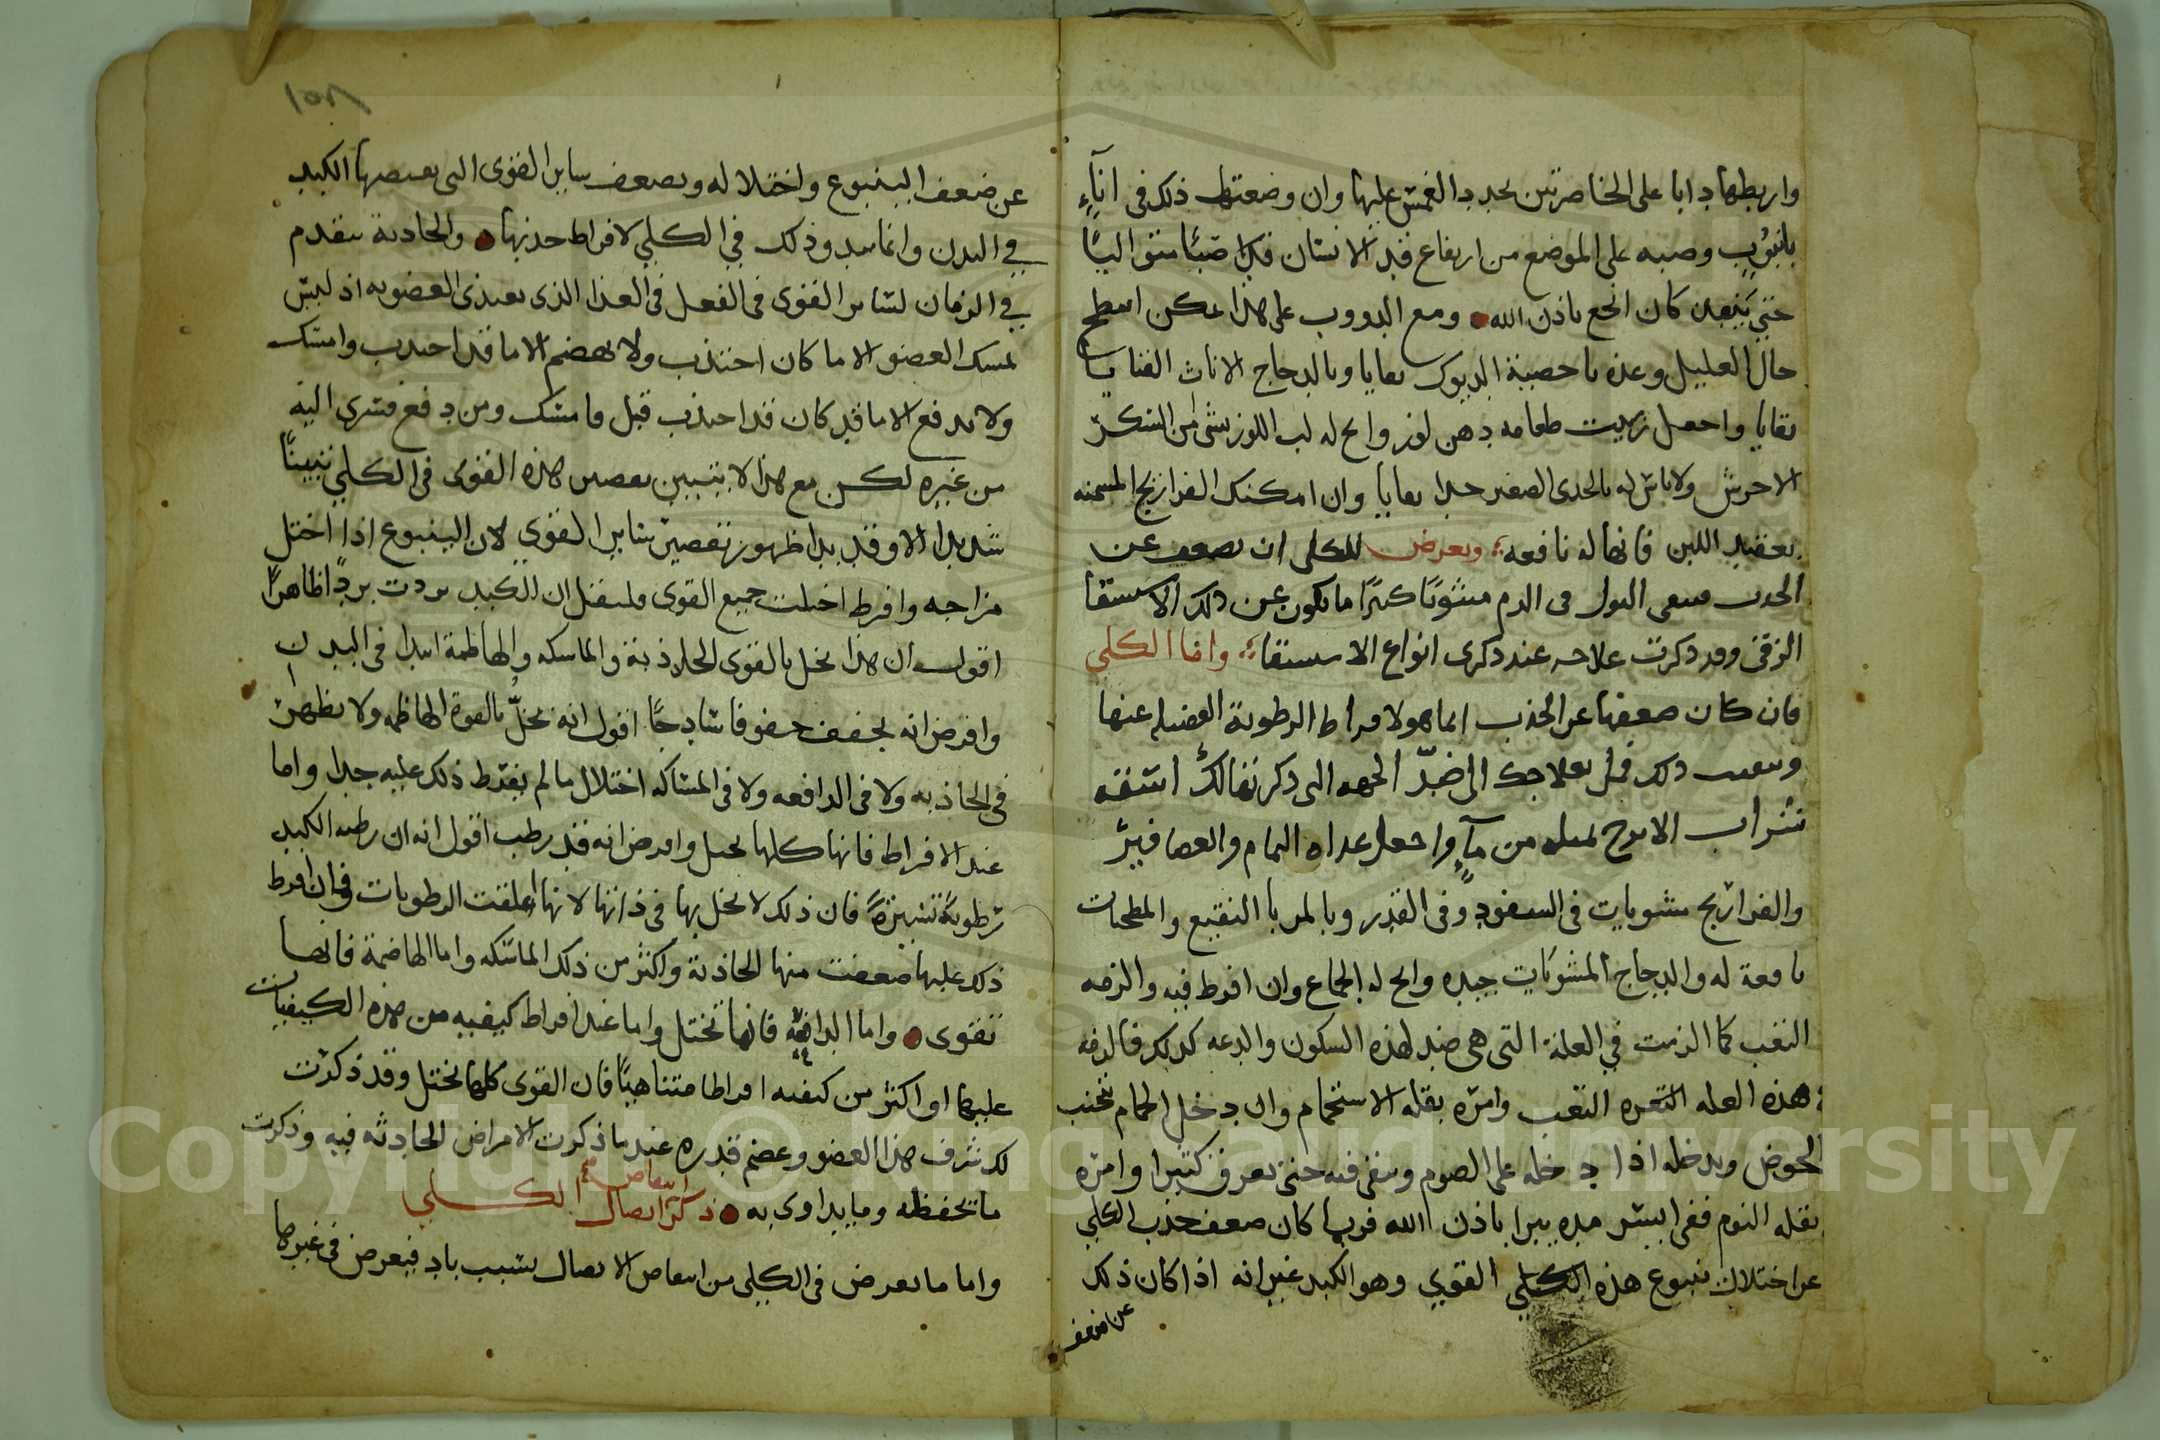 واربطها دابا على الخاصرتين بحدد الغمش عليها وان وضعتها ذلك فى انآء
بانبوب وصبه على الموضع من ارتفاع قيد الانسان فكل صبا متواليًا
حتى ينفد كان انجع باذن الله ومع الدووب على هذا يمكن اصطلح
حال العليل وعذه باخصية الديوك بقايا وبالدجاج الاناث الفتايا
بقايا واجعل زيت طعامه دهن لوز وابح له لب اللوز بشئ من السكر
الاحرش ولاباس له بالجدى الصغير جدا بقايا وان امكنك الفراريج المسمنه
بعقيد اللبن فانها له نافعه ويعرض للكلى ان تضعف عن
الجذب فيبقى البول فى الدم مبثوثا كثيرًا ما يكون عن ذلك الاستسقا
الزقى وقد ذكرت علاجه عند ذكرى انواع الاستسقا واما الكلى
فان كان ضعفها عن الجذب انما هو لافراط الرطوبة الفضليه عنها
وتبينت ذلك فمل بعلاجك الى ضدّ الجهه التى ذكرتها لك اسقه
شراب الاترج بمثله من مآء واجعل غذاه اليمام والعصافير
والفراريج مشويات فى السفود وفى القدر وبالمربا النقيع والمطجنات
نافعة له والدجاج المشويات جيده وابح له الجماع وان افرط فيه والزمه
التعب كما الزمت في العلة التى هى ضد لهذه السكون والدعه كذلك فالزمه
هذه العله التعب وامره بقله الاستحمام وان دخل الحمام تجنب
الحوض ويدخله اذا دخله على الصوم ويبقى فيه حتى يعرق كثيرا وامره
بقله النوم ففى ايسر مده يبرا باذن الله فربما كان ضعف جذب الكلى
عن اختلال ينبوع هذه الكلى القوي وهو الكبد غير انه اذا كان ذلك
عن ضعف
١٥١
عن ضعف الينبوع واختلاله ويضعف ساير القوى التى يقتضيها الكبد
في البدن وانما يبد وذلك في الكلي لافراط حذبها والجاذبة تتقدم
في الزمان لساير القوى فى الفعل فى الغذا الذى يغتذى العضو به اذ ليس
يمسك العضو الا ما كان اجتذب ولا يهضم الا ما قد اجتذب وامسك
ولا يدفع الا ما قد كان قد اجتذب قبل وامسك ومن دفع فسرى اليه
من غيره لكن مع هذا لا يتبين تقصير هذه القوى فى الكلي تبينًا
شديدا الا وقد بدا ظهور تقصير ساير القوي لان الينبوع اذا اختل
مزاجه وافرط اختلت جميع القوى ولنقل ان الكبد بردت بردًا ظاهرًا
اقول ان هذا يخل بالقوى الجاذبة والماسكه والهاظمة ابدا فى البدن
وافرض انه يجفف جفوفا ساذجًا اقول انه يخلُّ بالقوة الهاظمه ولا يظهر
فى الجاذبه ولا فى الدافعه ولا فى الماسكه اختلال ما لم يفرط ذلك عليه جدا واما
عند الافراط فانها كلها تختل وافرض انه قد رطب اقول انه ان رطبه الكبد
رطوبةً يسيرةً فان ذلك لا يخل بها فى ذاتها لانها اعلقت الرطوبات فان افرط
ذلك عليها ضعفت منها الجاذبة واكثر من ذلك الماسكه واما الهاضمة فانها
تقوى واما الدافعه فانها تختل واما عند افراط كيفيه من هذه الكيفيات
عليها او اكثر من كيفيه افراطا متناهيًا فان القوى كلها تختل وقد ذكرت
لك شرف هذا العضو وعضم قدره عند ما ذكرت الامراض الحادثه فيه وذكرت
ما تحفظه وما يداوى به ذكر انتقاض اتصال الكلي
واما ما يعرض فى الكلى من انتقاض الاتصال بسبب باد فيعرض فى غيرها
Copyright © King Saud University